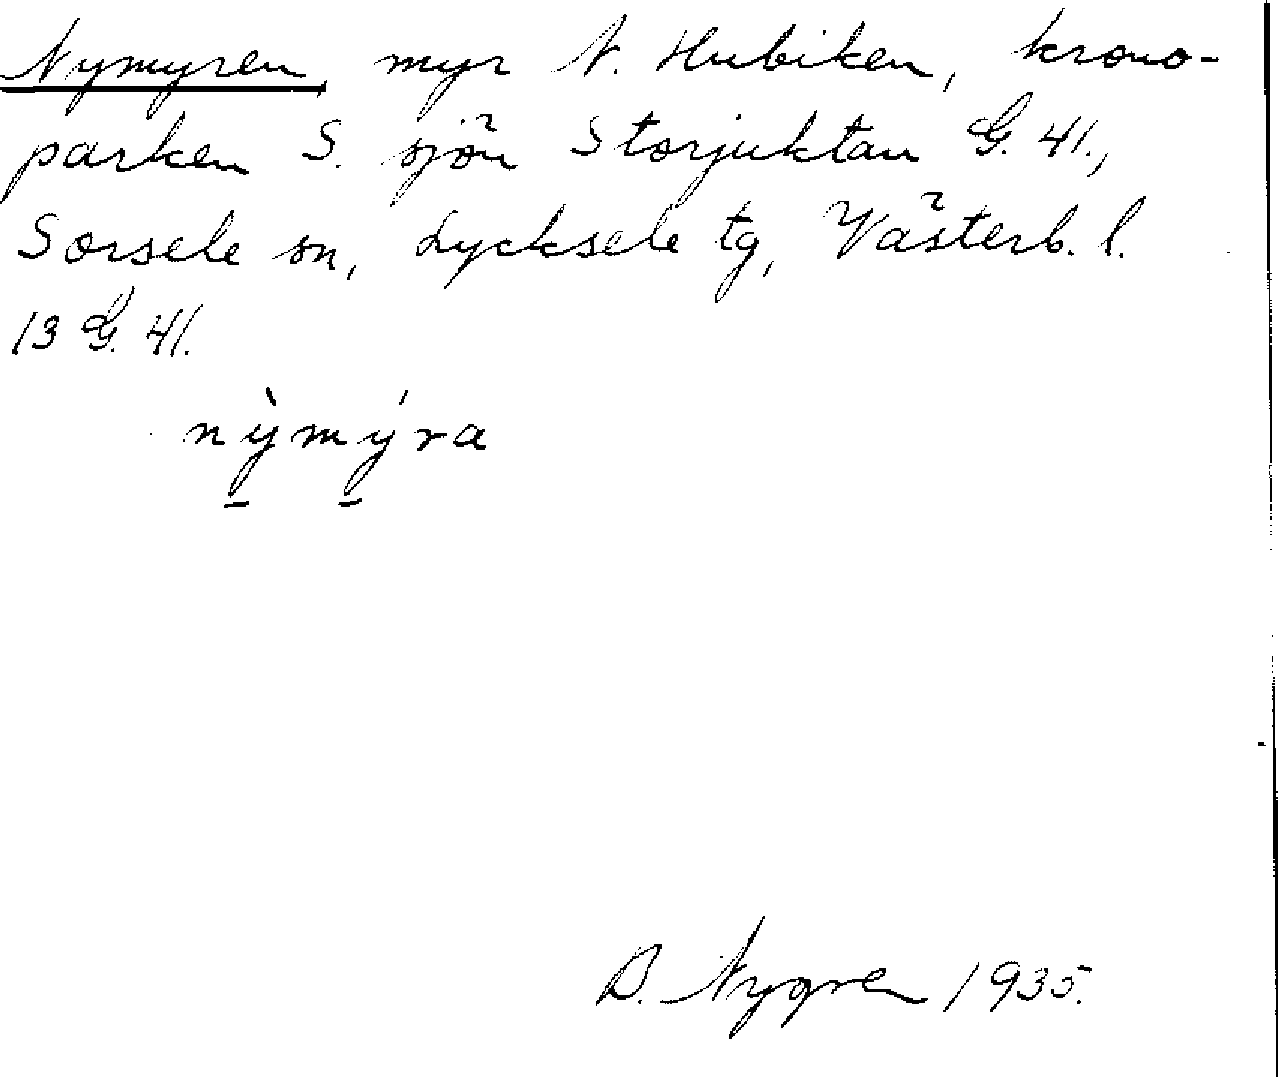 Nymyren, myr N. Hubiken, krono-
parken S. sjön Storjuktan G. 41.,
Sorsele sn, Lycksele tg, Västerb. l.
13 G. 41.
nỳmýra
B. Nygren 1935.